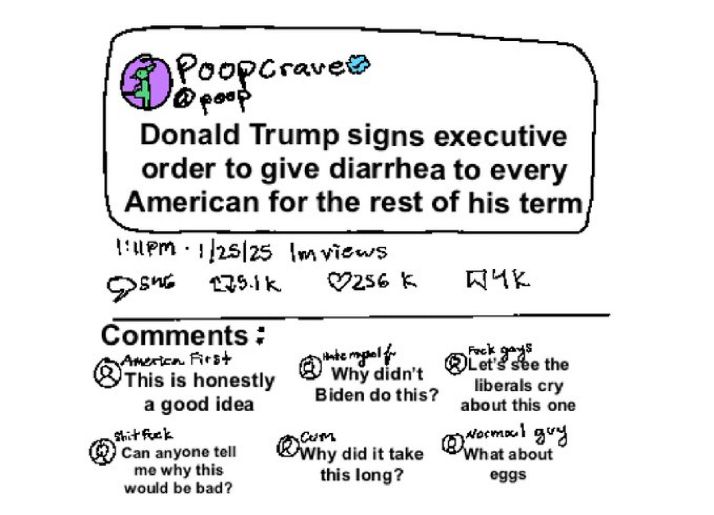 Poopcrave
@poop
Donald Trump signs executive
order to give diarrhea to every
American for the rest of his term
1:11PM · 1/25/25 1m views
546 75.1K 256 K 4K
Comments :
America First
This is honestly
a good idea
Hate myself
Why didn't
Biden do this?
Fuck gays
Let's see the
liberals cry
about this one
Shit fuck
Can anyone tell
me why this
would be bad?
Cum
Why did it take
this long?
Normal guy
What about
eggs